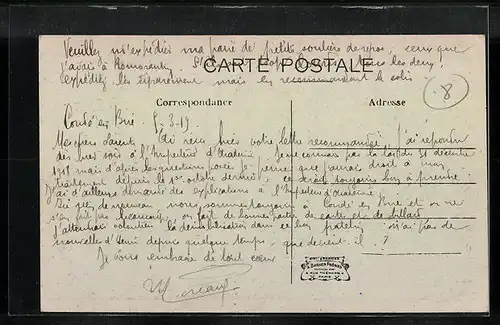 Veuillez m'expédier ma paire de petits souliers de repos, ceux que
j'avais à Romorantin
expédiez les séparément mais en recommandant le colis
CARTE POSTALE
8
Correspondance
Adresse
Condé en Brie 5-3-19
Mes chers parents J'ai reçu hier votre lettre recommandée, j'ai répondu
dès hier soir à l'Inspecteur d'Académie Je ne connais pas la loi du 31 décembre
1918 mais d'après les questions posées je pense que j'aurai droit à mon
traitement depuis le 1er octobre dernier, ce serait toujours bon à prendre
J'ai d'ailleurs demandé des explications à l'Inspecteur d'Académie.
Ici rien de nouveau nous sommes toujours à Condé en Brie et on ne
s'en fait pas beaucoup, on fait de bonnes parties de cartes et de billard
J'attendrais volontiers la démobilisation dans ce bon patelin. Je n'ai pas de
nouvelles d'Henri depuis quelque temps, que devient-il ?
Je vous embrasse de tout coeur
PARIS